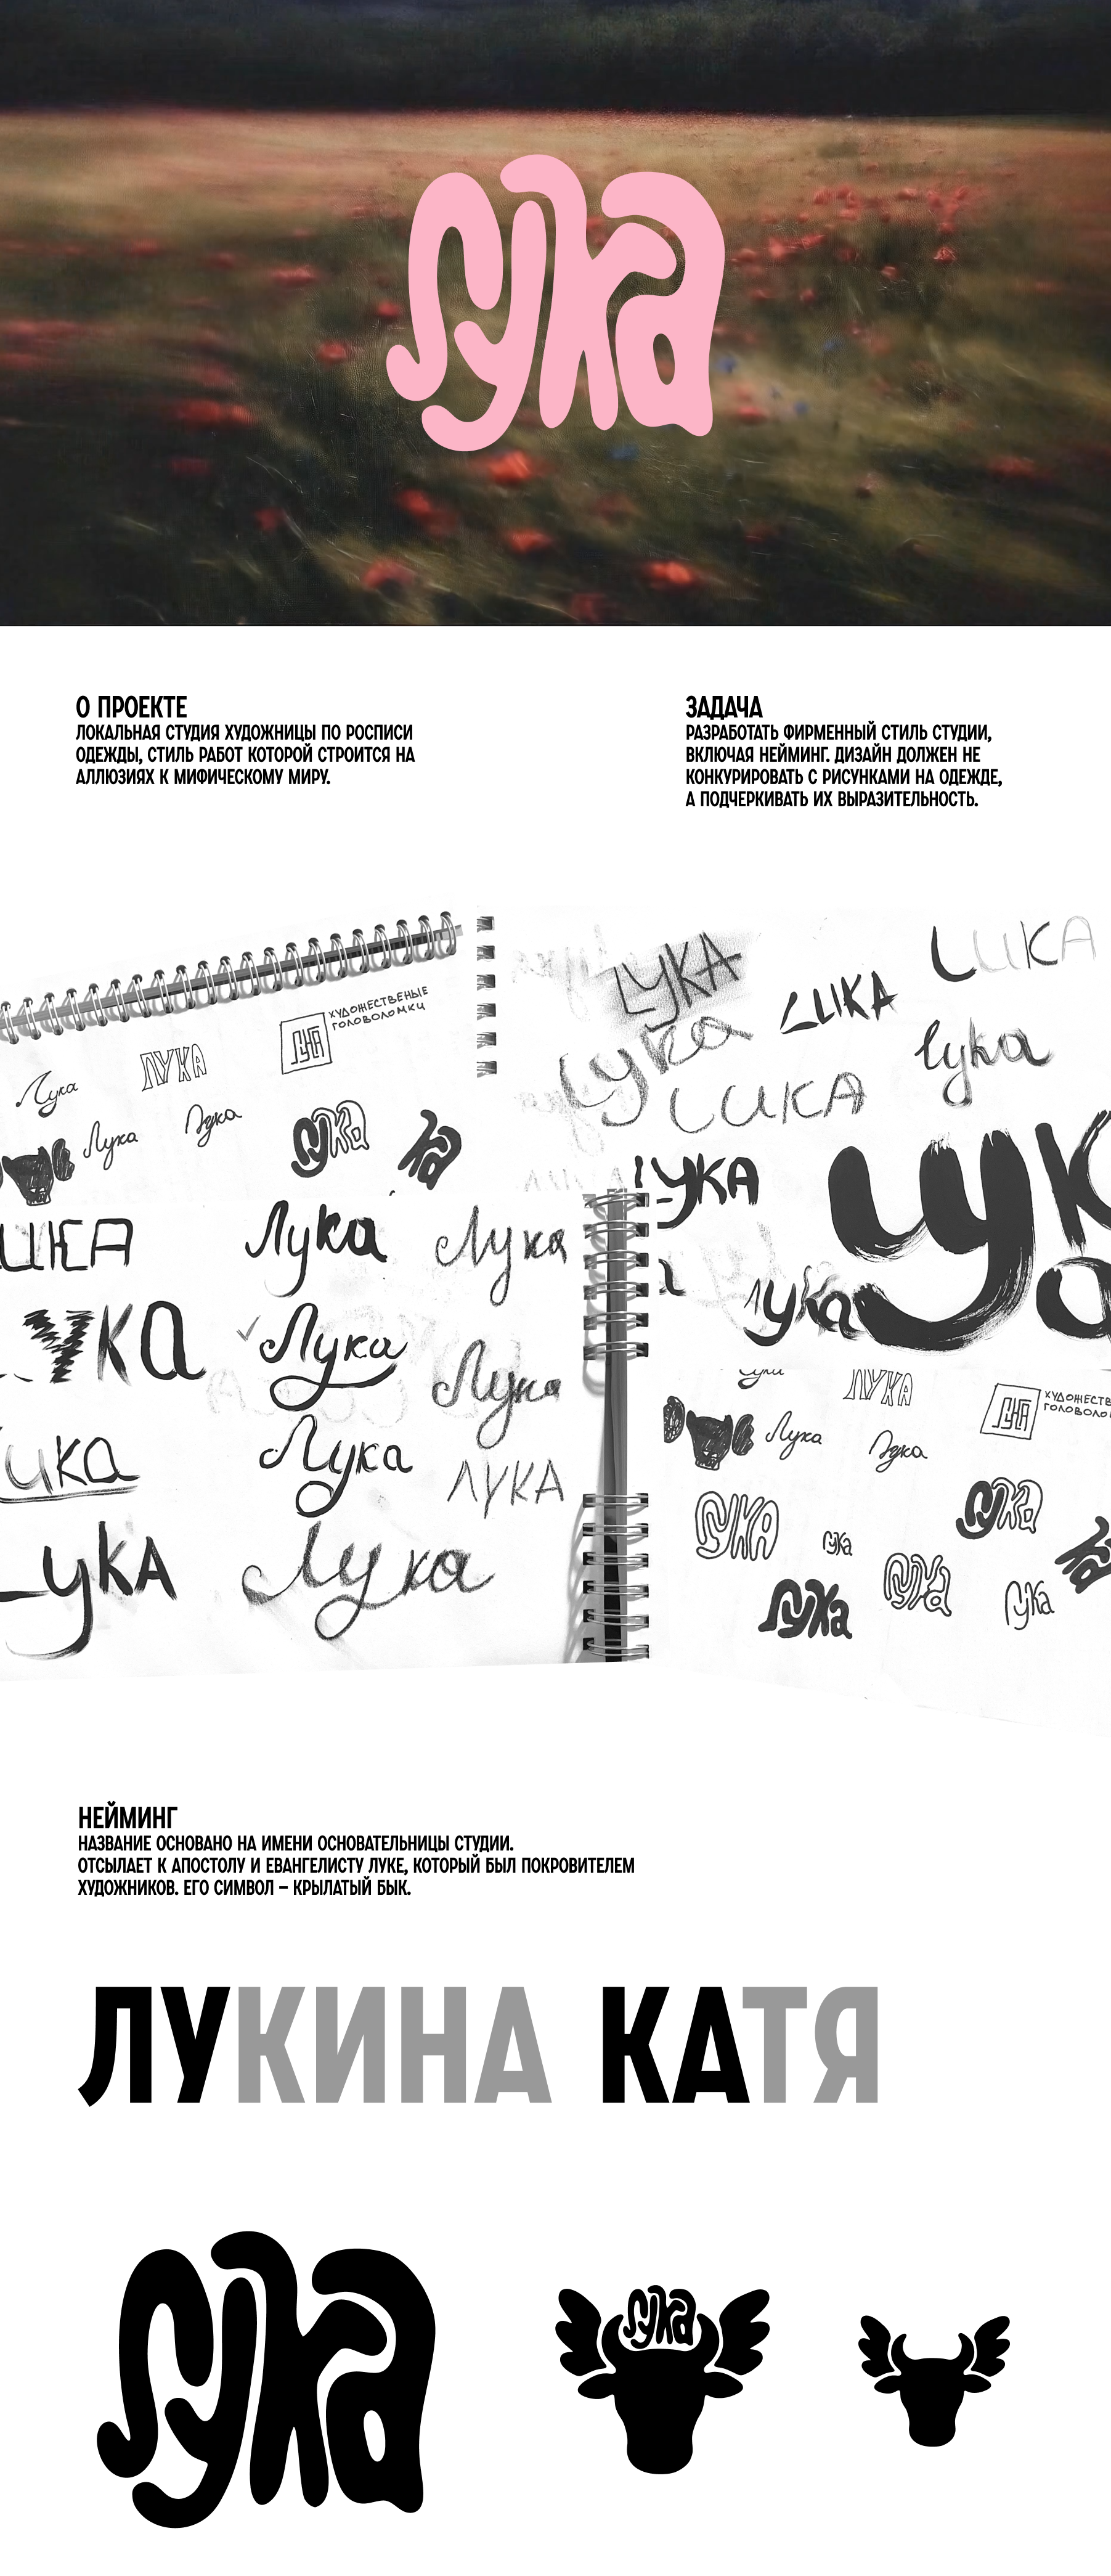 лука
О ПРОЕКТЕ
ЛОКАЛЬНАЯ СТУДИЯ ХУДОЖНИЦЫ ПО РОСПИСИ
ОДЕЖДЫ, СТИЛЬ РАБОТ КОТОРОЙ СТРОИТСЯ НА
АЛЛЮЗИЯХ К МИФИЧЕСКОМУ МИРУ.
ЗАДАЧА
РАЗРАБОТАТЬ ФИРМЕННЫЙ СТИЛЬ СТУДИИ,
ВКЛЮЧАЯ НЕЙМИНГ. ДИЗАЙН ДОЛЖЕН НЕ
КОНКУРИРОВАТЬ С РИСУНКАМИ НА ОДЕЖДЕ,
А ПОДЧЕРКИВАТЬ ИХ ВЫРАЗИТЕЛЬНОСТЬ.
ХУДОЖЕСТВЕНЫЕ
ГОЛОВОЛОМКИ
ЛУКА
Лука
Лука
Лука
лука
ка
LУКА
Lука
LUKA
LUKA
LUKA
lука
УКА
лука
Лука
Лука
УКА
Лука
Лука
ука
Лука
ЛУКА
LУКА
Лука
ЛУКА
Лука
Лука
ЛУКА
лука
лука
лука
лука
лука
НЕЙМИНГ
НАЗВАНИЕ ОСНОВАНО НА ИМЕНИ ОСНОВАТЕЛЬНИЦЫ СТУДИИ.
ОТСЫЛАЕТ К АПОСТОЛУ И ЕВАНГЕЛИСТУ ЛУКЕ, КОТОРЫЙ БЫЛ ПОКРОВИТЕЛЕМ
ХУДОЖНИКОВ. ЕГО СИМВОЛ – КРЫЛАТЫЙ БЫК.
ЛУКИНА КАТЯ
лука
лука